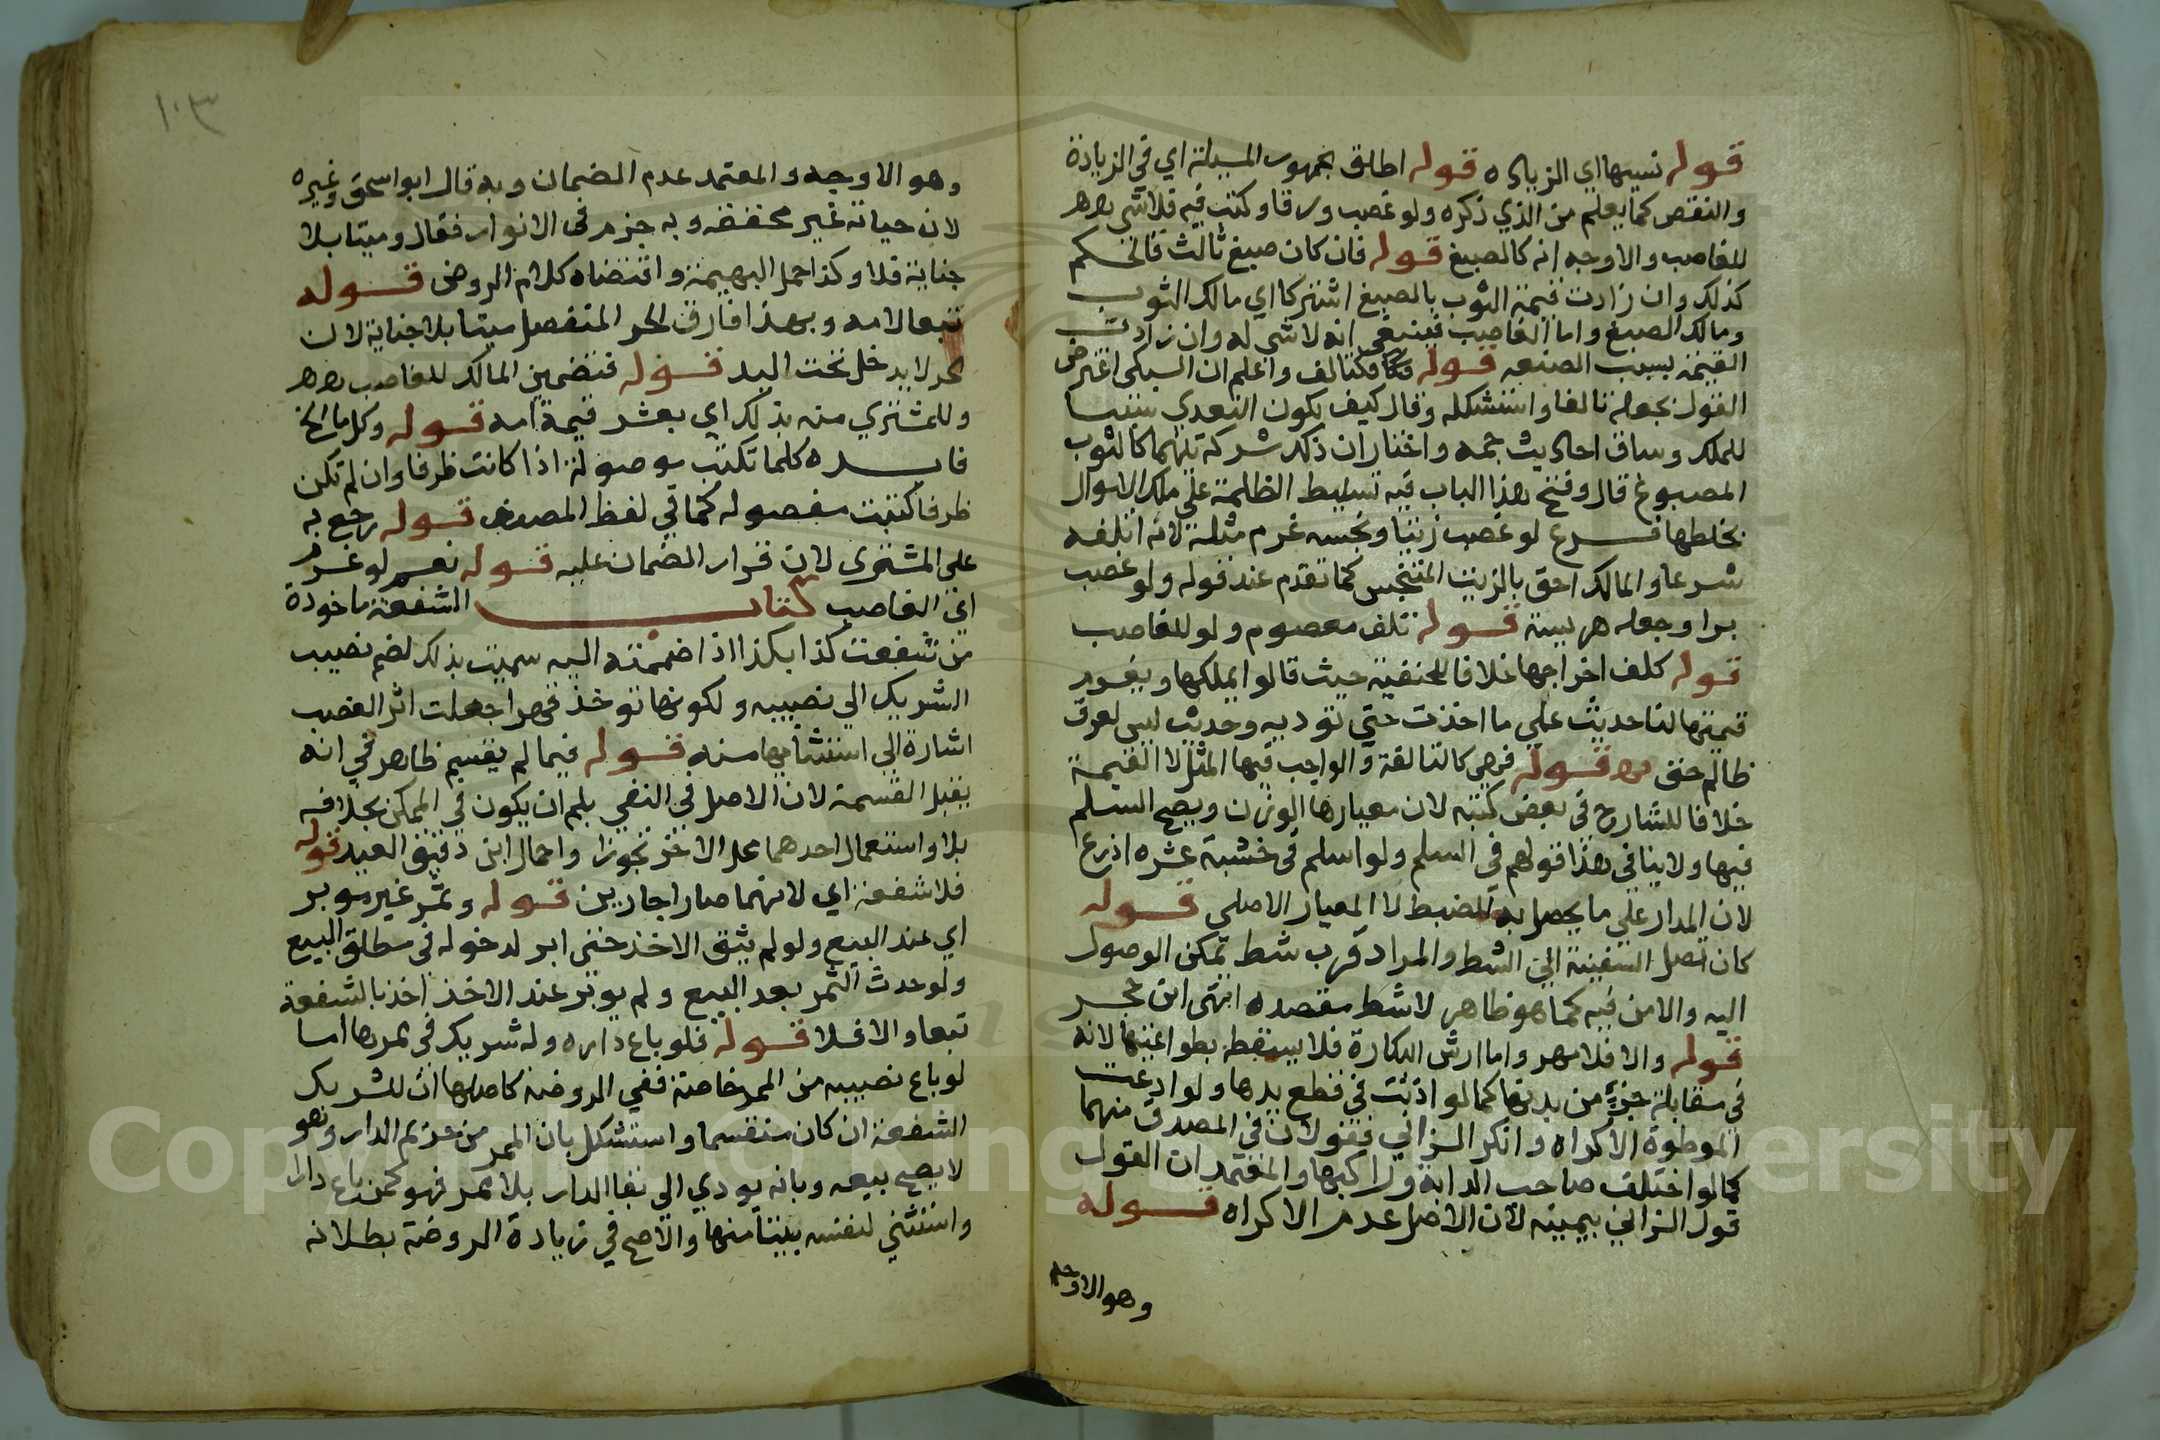 قوله نسبها اي الزيادة قوله اطلق الجمهور المسيلة اي في الزيادة
والنقص كما يعلم من الذي ذكره ولو غصب ورقا وكتب فيه فلا شي
للغاصب والاوجه انه كالصبغ قوله فان كان صبغ ثالث فالحكم
كذلك وان زادت قيمة الثوب بالصبغ اشتركا اي مالك الثوب
ومالك الصبغ واما الغاصب فينبغي انه لا شي له وان زادت
القيمة بسبب الصنعه قوله فكالتالف واعلم ان السبكي اعترض
القول بجعله تالفا واستشكله وقال كيف يكون التعدي سببا
للملك وساق احاديث جمه واختار ان ذلك شركة بينهما كالثوب
المصبوغ قال وفتح هذا الباب فيه تسليط الظلمة على ملك الاموال
بخلطها فرع لو غصب زيتا ونجسه غرم مثله لانه اتلفه
شرعا والمالك احق بالزيت المتنجس كما تقدم عند قوله ولو غصب
برا وجعله هريسة قوله تلف معصوم ولو للغاصب
قوله كلف اخراجها خلافا للحنفية حيث قالوا يملكها ويغرم
قيمتها لنا حديث على ما اخذت حتي توديه وحديث ليس لعرق
ظالم حق قوله فهي كالتالفة والواجب فيها المثل لا القيمة
خلافا للشارح في بعض كتبه لان معيارها الوزن ويصح السلم
فيها ولا ينافي هذا قولهم في السلم ولو اسلم في خشبة عشره اذرع
لان المدار علي ما يحصل به الضبط لا المعيار الاصلي قوله
كان تصل السفينة الي الشط والمراد قرب شط تمكن الوصول
اليه والامن فيه كما هو ظاهر لا شط مقصده انتهى ابن حجر
قوله والا فلا مهر واما ارش البكارة فلا يسقط بطواعيتها لانه
في مقابلة جزء من بدنها كما لو اذنت في قطع يدها ولو ادعت
الموطوة الاكراه وانكر الزاني فقولان في المصدق منهما
كما لو اختلف صاحب الدابة وراكبها والمعتمد ان القول
قول الزاني بيمينه لان الاصل عدم الاكراه قوله
وهو الاوجه
١٠٣
وهو الاوجه والمعتمد عدم الضمان وبه قال ابو اسحق وغيره
لان حياته غير محققه وبه جزم في الانوار فقال وميتا بلا
جناية فلا وكذا حمل البهيمة واقتضاه كلام الروض قوله
تبعا لامه وبهذا فارق الحر المنفصل ميتا بلا جناية لان
الحر لا يدخل تحت اليد قوله فتضمين المالك للغاصب
وللمشتري منه بذلك اي بعشر قيمة امه قوله وكل ما الخ
فايده كلما تكتب موصولة اذا كانت ظرفا وان لم تكن
ظرفا كتبت مفصوله كما في لفظ المصنف قوله رجع به
على المشتري لان قرار الضمان عليه قوله نعم لو غرم
اي الغاصب كتاب الشفعة ماخوذة
من شفعت كذا بكذا اذا ضممته اليه سميت بذلك لضم نصيب
الشريك الي نصيبه ولكونها توخذ قهرا جعلت اثر الغصب
اشارة الي استثنايها منه قوله فيما لم يقسم ظاهر في انه
يقبل القسمة لان الاصل في النفي بلم ان يكون في الممكن بخلافه
بلا واستعمال احدهما محل الاخر تجوزا واجمال ابن دقيق العيد قوله
فلا شفعة اي لانهما صارا جارين قوله وثمر غير موبر
اي عند البيع ولو لم يتفق الاخذ حتى ابر لدخوله في مطلق البيع
ولو حدث الثمر بعد البيع ولم يوبر عند الاخذ اخذ بالشفعة
تبعا والا فلا قوله فلو باع داره وله شريك في ممرها اما
لو باع نصيبه من الممر خاصة ففي الروضة كاصلها ان للشريك
الشفعة ان كان منقسما واستشكل بان الممر من حريم الدار وهو
لا يصح بيعه وبانه يودي الي بقا الدار بلا ممر فهو كمن باع دارا
واستثني لنفسه بيتا منها والاصح في زيادة الروضة بطلانه
Copyright © King University